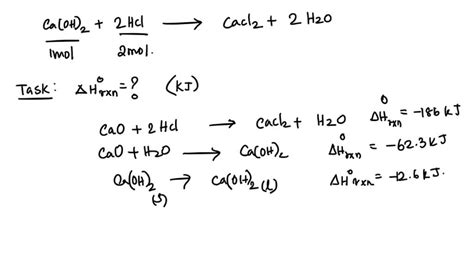 Ca(OH)₂ + 2HCl → CaCl₂ + 2H₂O
1mol 2mol.
Task: ΔH°rxn = ? (kJ)
CaO + 2HCl → CaCl₂ + H₂O ΔH°rxn = -186 kJ
CaO + H₂O → Ca(OH)₂ ΔH°rxn = -62.3 kJ
Ca(OH)₂(s) → Ca(OH)₂(l) ΔH°rxn = -12.6 kJ.